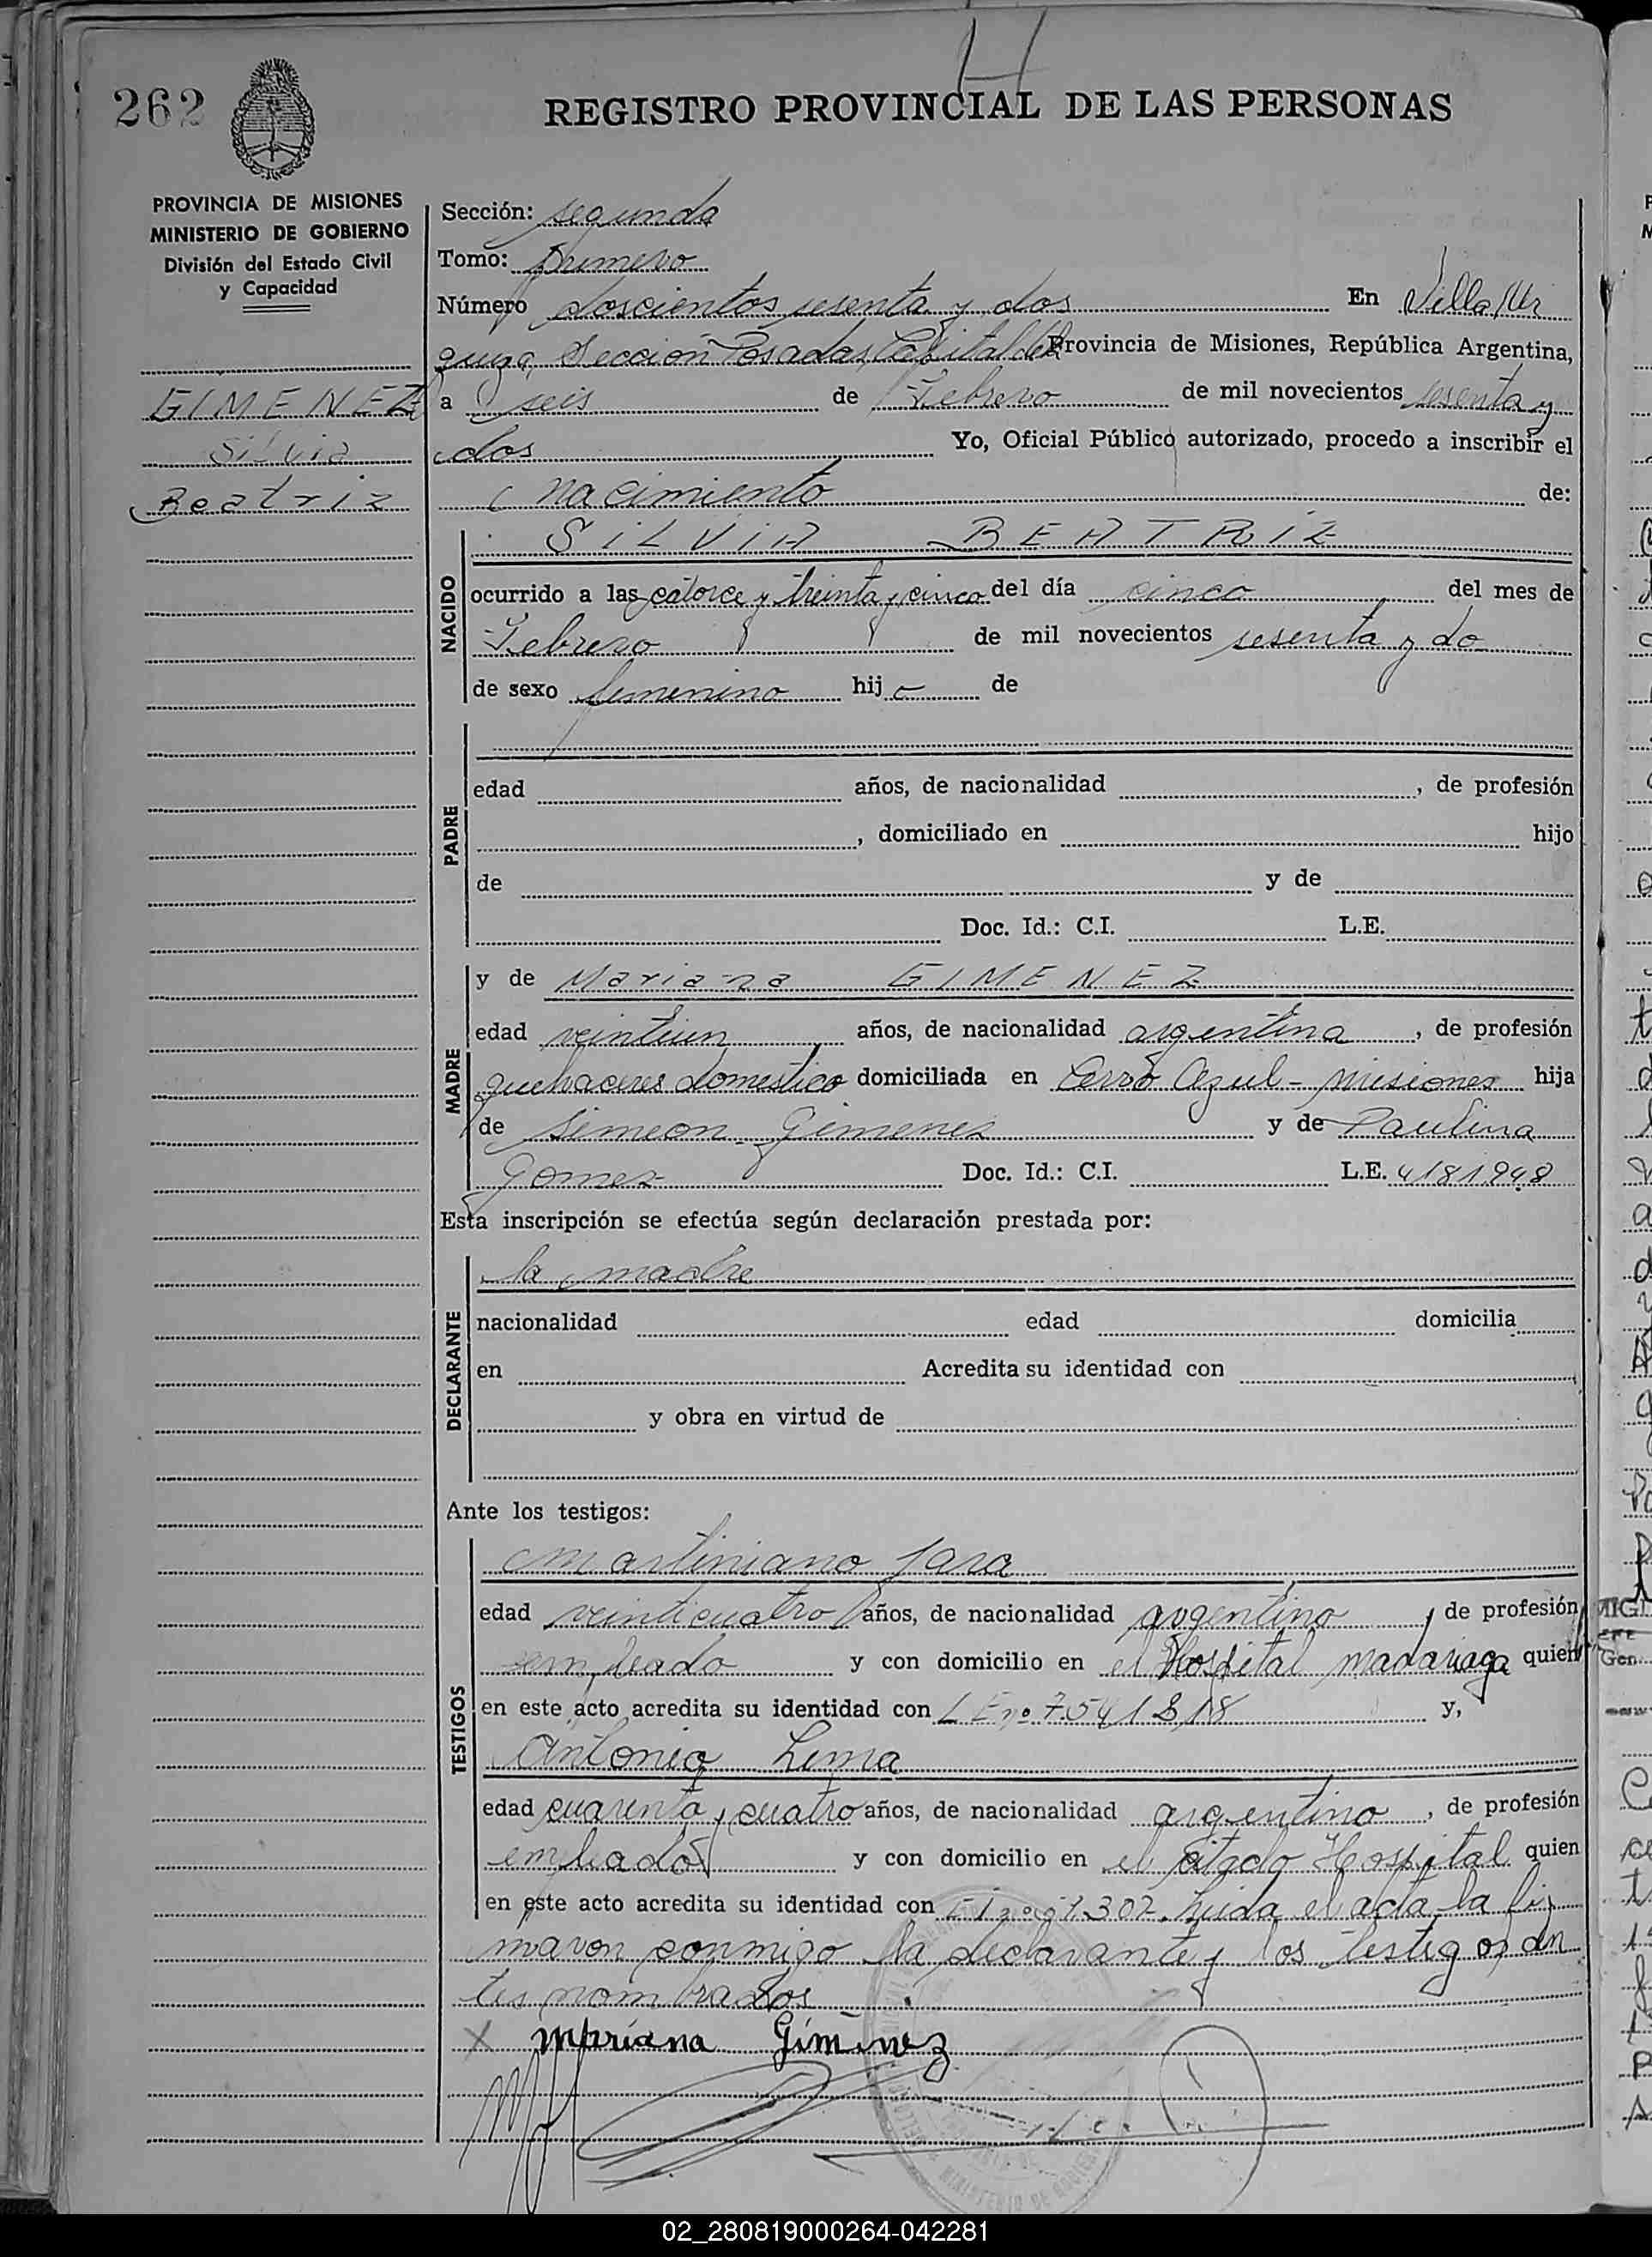 262
REGISTRO PROVINCIAL DE LAS PERSONAS
PROVINCIA DE MISIONES
MINISTERIO DE GOBIERNO
División del Estado Civil
y Capacidad
GIMENEZ
Silvia
Beatriz
Sección: segunda
Tomo: Primero
Número doscientos sesenta y dos En Villa Ur
quiza, Sección Posadas, Capital de la Provincia de Misiones, República Argentina,
a seis de Febrero de mil novecientos sesenta y
dos Yo, Oficial Público autorizado, procedo a inscribir el
nacimiento de:
NACIDO
SILVIA BEATRIZ
ocurrido a las catorce y treinta y cinco del día cinco del mes de
Febrero de mil novecientos sesenta y do
de sexo femenino hij de
PADRE
edad años, de nacionalidad , de profesión
, domiciliado en hijo
de y de
Doc. Id.: C.I. L.E.
MADRE
y de Mariana GIMENEZ
edad veintiun años, de nacionalidad argentina , de profesión
quehaceres domestico domiciliada en Cerro Azul - Misiones hija
de Simeon Gimenez y de Paulina
Gomez Doc. Id.: C.I. L.E. 4181948
Esta inscripción se efectúa según declaración prestada por:
DECLARANTE
la madre
nacionalidad edad domicilia
en Acredita su identidad con
y obra en virtud de
Ante los testigos:
TESTIGOS
Martiniano Jara
edad veinticuatro años, de nacionalidad argentino , de profesión
empleado y con domicilio en el Hospital madariaga quien
en este acto acredita su identidad con L E nº 7.541818 y,
Antonio Lima
edad cuarenta y cuatro años, de nacionalidad argentino , de profesión
empleado y con domicilio en el citado Hospital quien
en este acto acredita su identidad con leida el acta la fir
maron conmigo la declarante y los testigos an
tes nombrados
X Mariana Gimenez
02_280819000264-042281